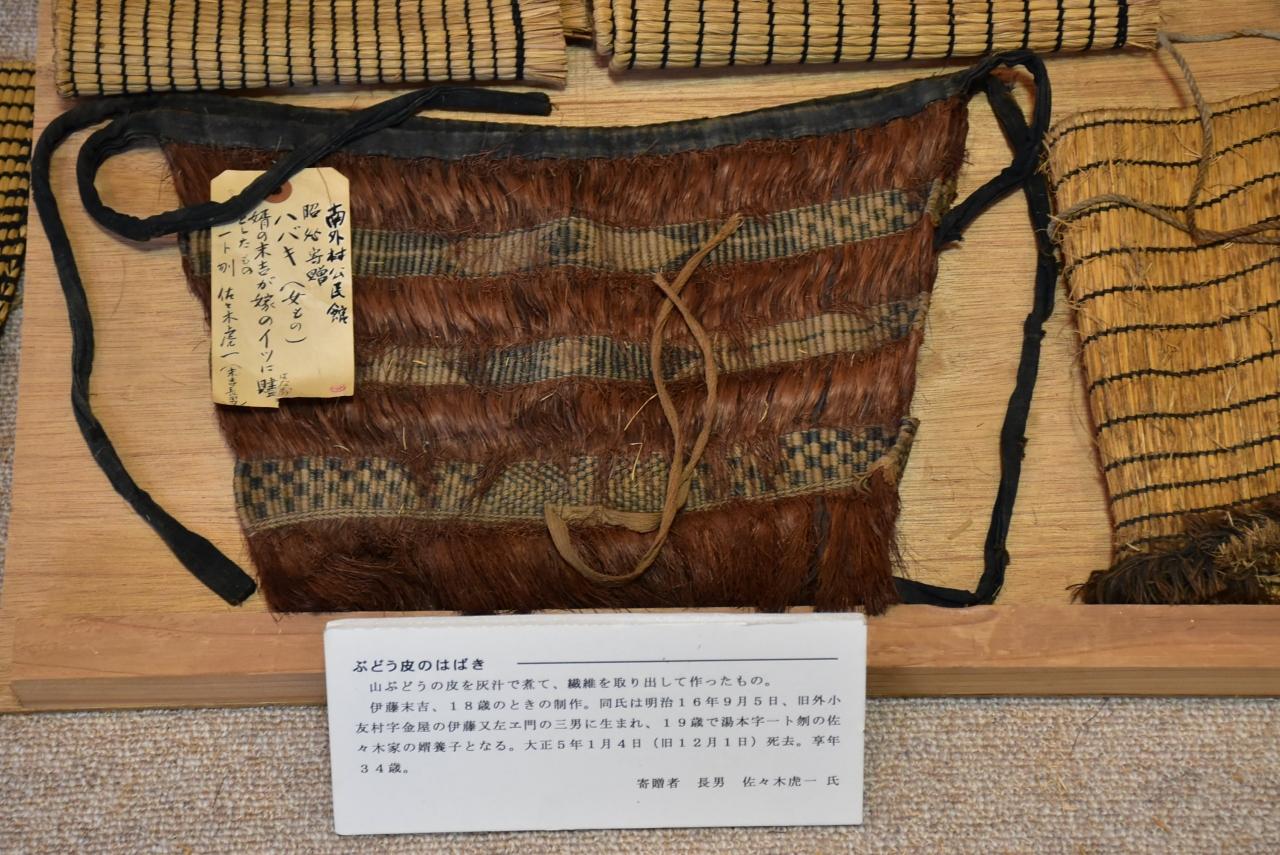 南外村公民館
寄贈
ハバキ(女もの)
婿の末吉が嫁のイツに贈
としたもの
佐々木虎一(末吉長男)
ぶどう皮のはばき
山ぶどうの皮を灰汁で煮て、繊維を取り出して作ったもの。
伊藤末吉、18歳のときの制作。同氏は明治16年9月5日、旧外小
友村字金屋の伊藤又左ヱ門の三男に生まれ、19歳で湯本字一ト刎の佐
々木家の婿養子となる。大正5年1月4日(旧12月1日)死去。享年
34歳。
寄贈者 長男 佐々木虎一 氏